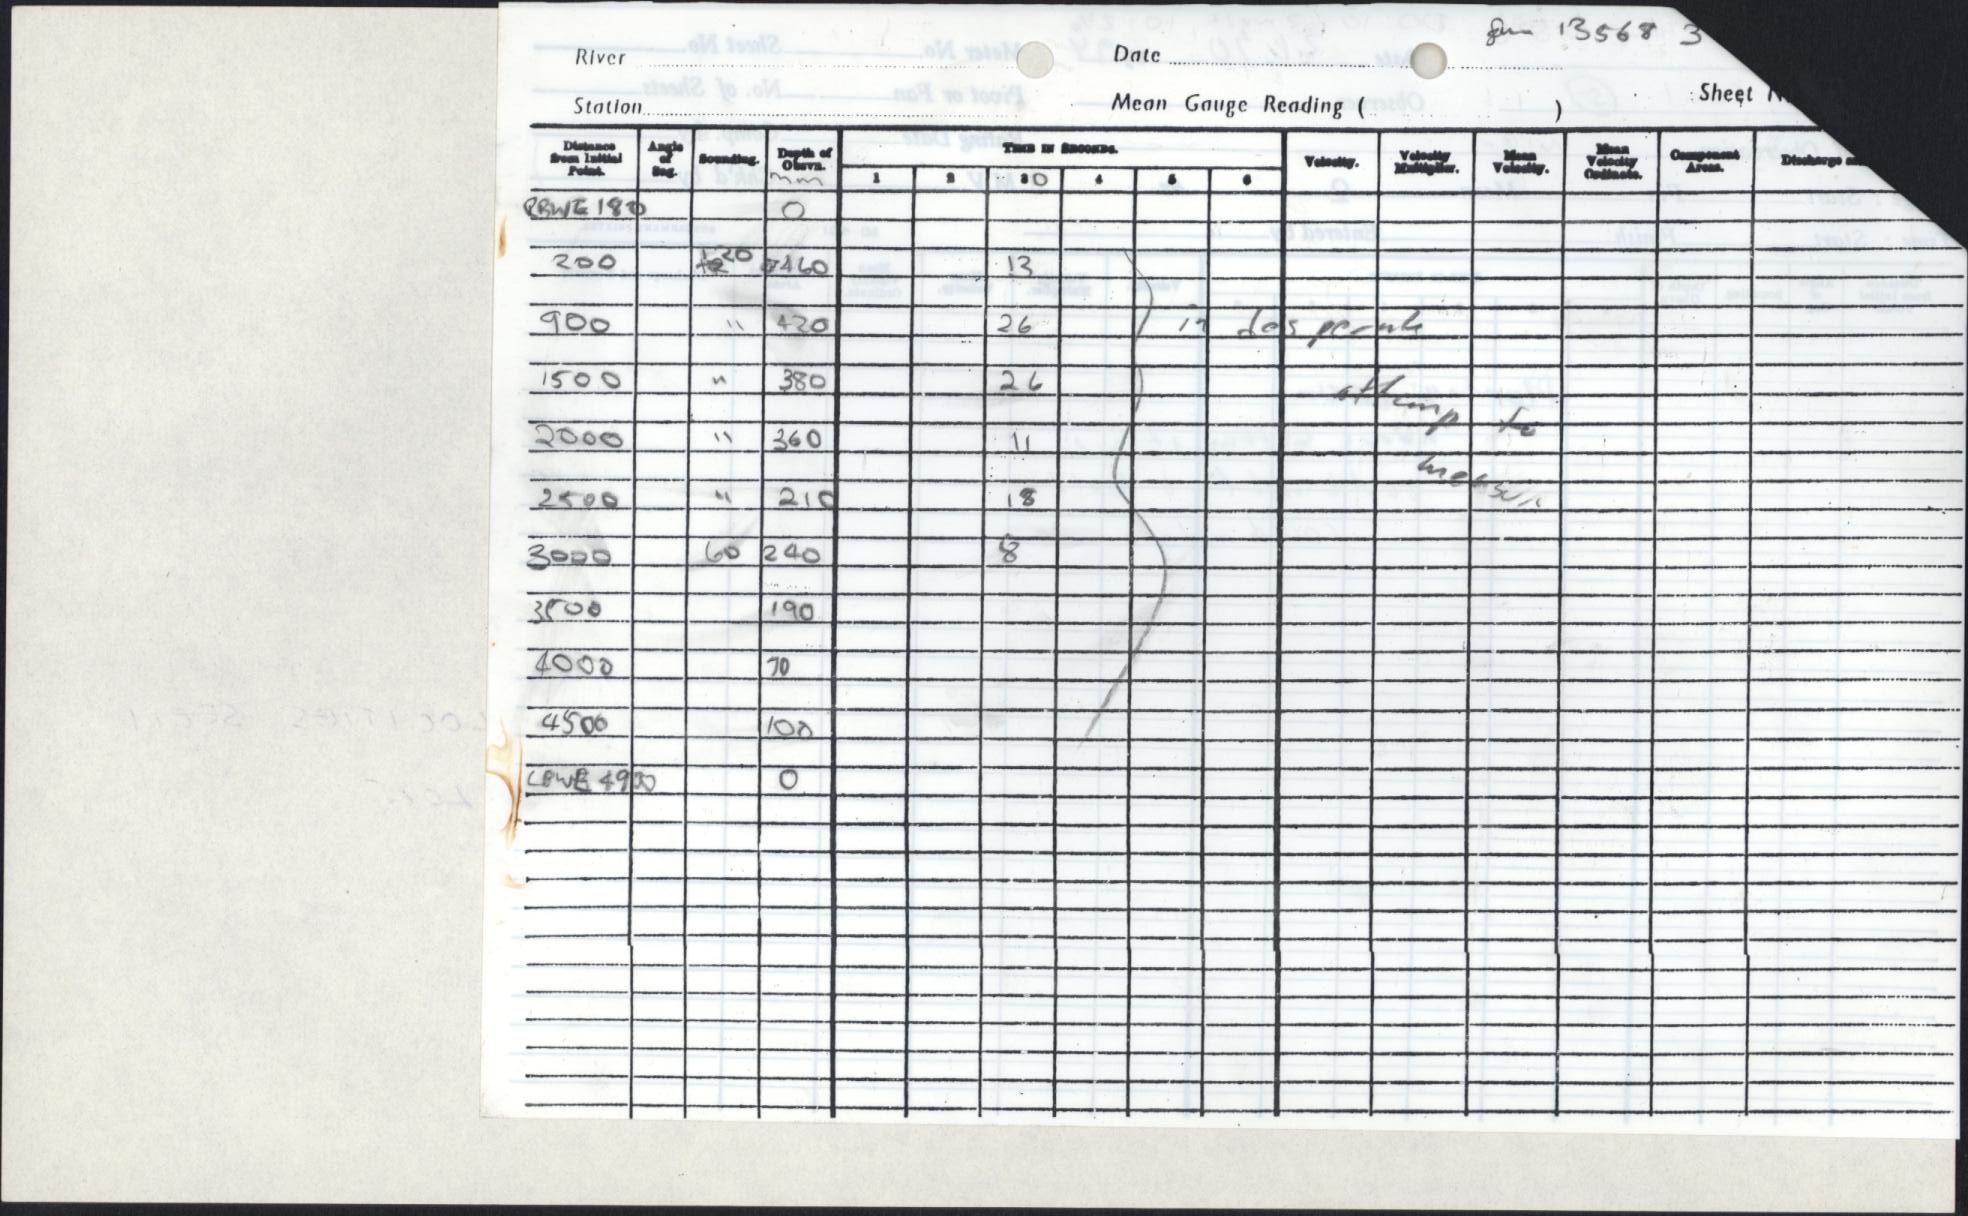 13568 3
River Date
Sheet
Station Mean Gauge Reading ( )
Distance from Initial Point. Angle of Seg. Sounding. Depth of Obsvn. TIME IN SECONDS. Velocity. Velocity Multiplier. Mean Velocity. Mean Velocity Ordinate. Component Areas. Discharge
mm 1 2 30 4 5 6
RBWE 180 0
200 20 460 13
900 " 420 26 in desperate
1500 " 380 26 attemp to
2000 " 360 11 measure
2500 " 210 18
3000 60 240 8
3500 190
4000 70
4500 100
LBWE 4900 0